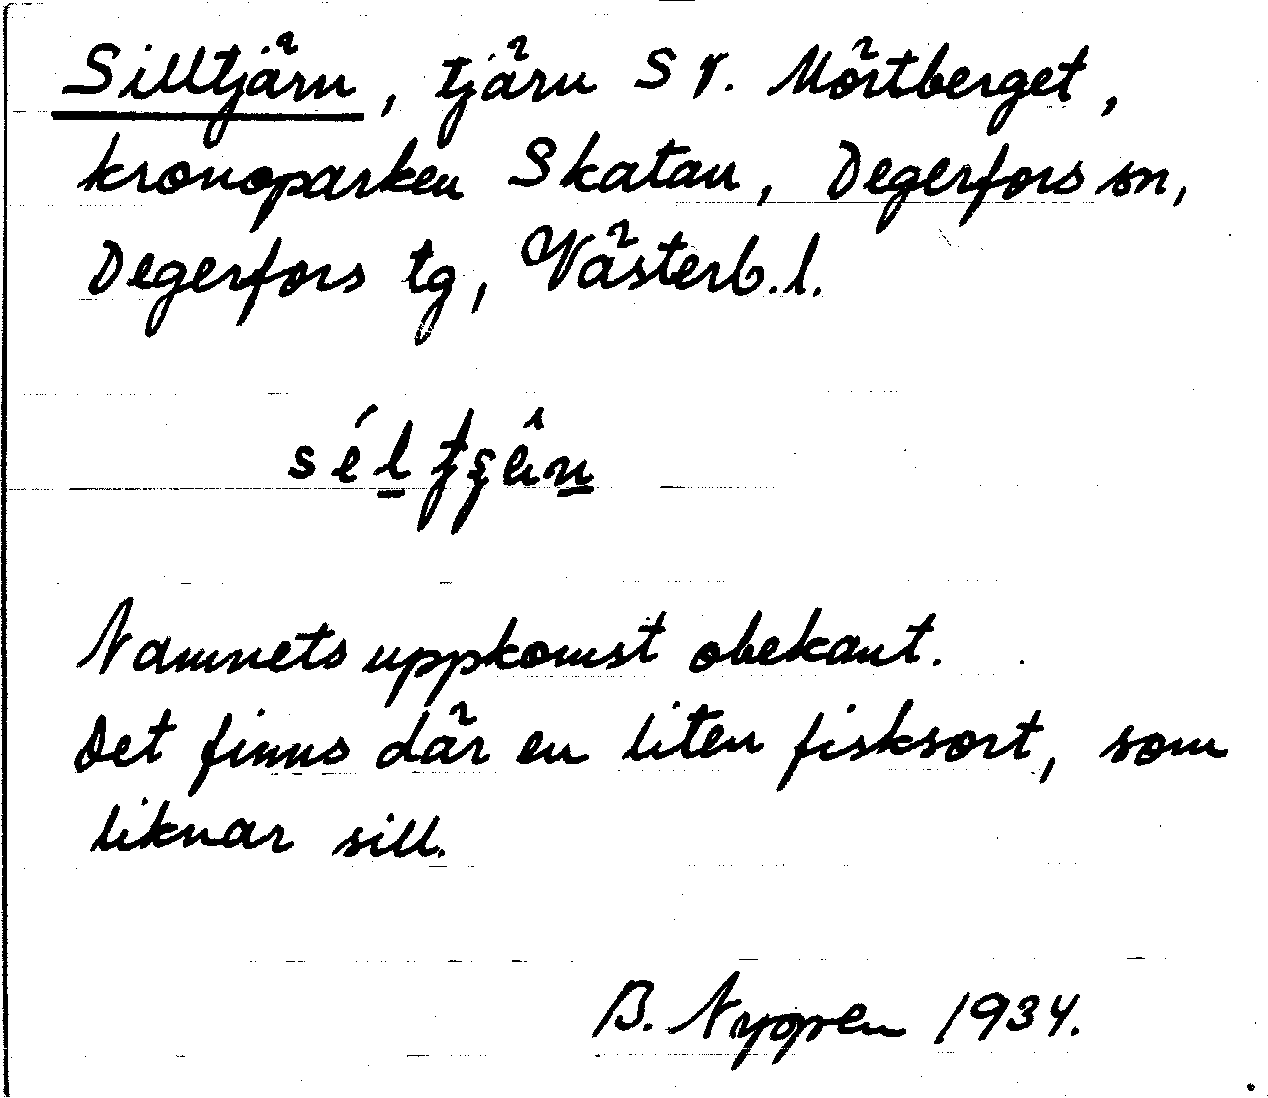 Silltjärn, tjärn S r. Mörtberget,
kronoparken Skatan, Degerfors sn,
Degerfors tg, Västerb. l.
Namnets uppkomst obekant.
Det finns där en liten fisksort, som
liknar sill.
B. Nygren 1934.